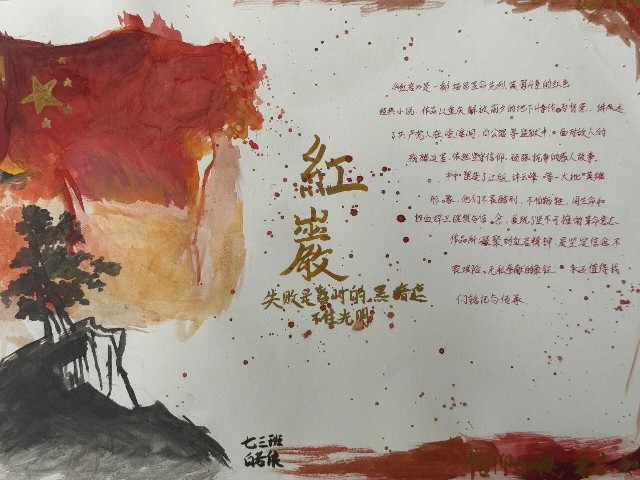 紅
巖
失败是暂时的,黑暗遮
不住光明
《红岩》是一部描写革命先烈英勇斗争的红色
经典小说,作品以重庆解放前夕的地下斗争为背景,讲述
了共产党人在渣滓洞、白公馆等监狱中,面对敌人的
残酷迫害,依然坚守信仰、顽强抗争的感人故事。
书中塑造了江姐、许云峰等一大批英雄
形象,他们不畏酷刑,不怕牺牲,用生命和
热血捍卫理想与信念,展现了坚不可摧的革命意志
作品所凝聚的红岩精神,是坚定信念不
畏艰险、无私奉献的象征,永远值得我
们铭记与传承
七三班